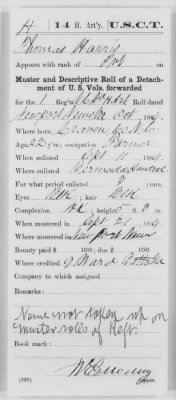 H | 14 H. Art'y. | U.S.C.T.
Thomas Harris
Appears with rank of Pvt on
Muster and Descriptive Roll of a Detachment
of U. S. Vols. forwarded
for the 1 Reg't N.C. Col. H. Art Roll dated
Newport News Va Oct , 1864.
Where born Craven Co. N.C.
Age 22 y'rs; occupation Farmer
When enlisted Sept 11 , 1864.
Where enlisted Bermuda Hundred
For what period enlisted 3 years.
Eyes Blk ; hair Blk
Complexion Blk ; height 5 ft. 8 in.
When mustered in Sept 21 , 1864.
Where mustered in Newport News
Bounty paid $ 100 ; due $ 100
Where credited
Company to which assigned
Remarks:
Name not taken up on
muster rolls of Regt.
Book mark:
(339)